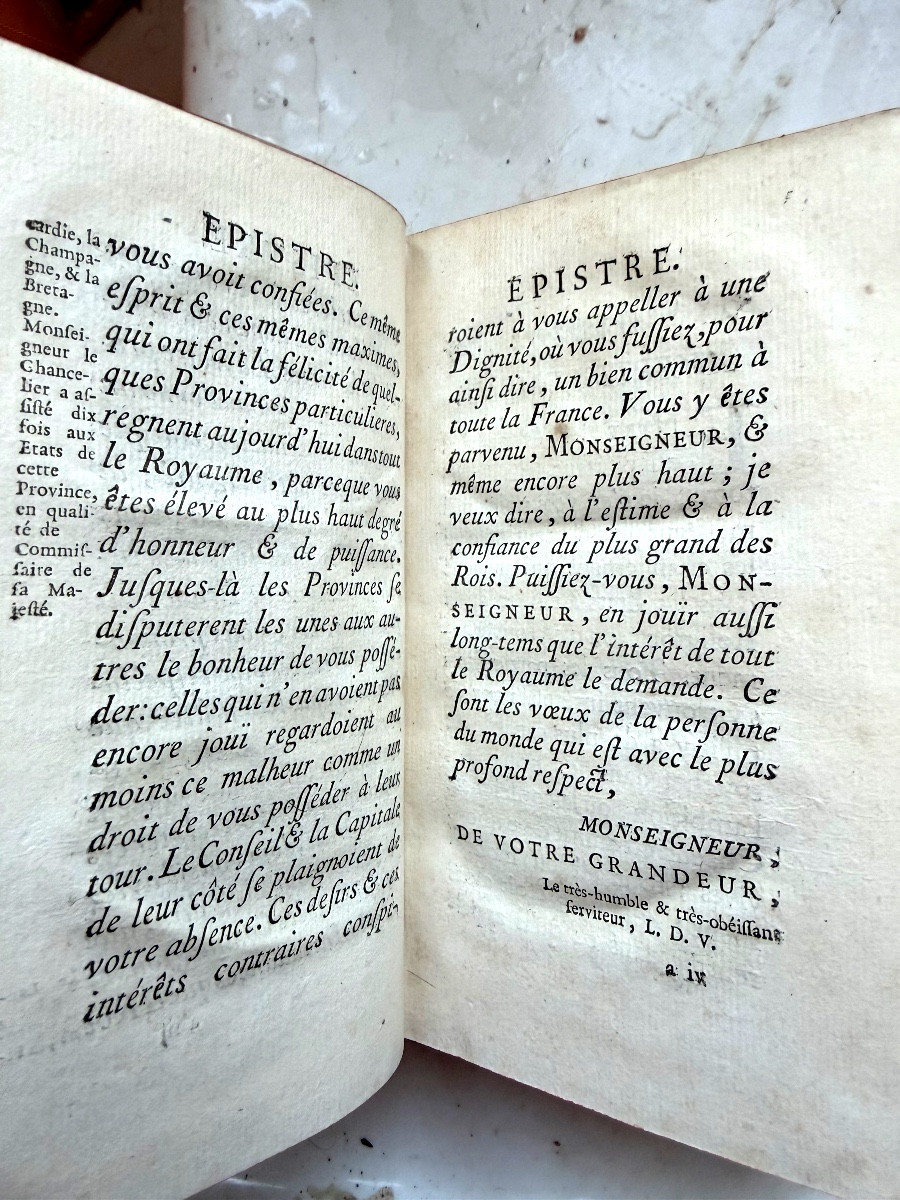 EPISTRE.
cardie, la
Champa-
gne, & la
Breta-
gne.
Monſei-
gneur le
Chance-
lier a aſ-
ſiſté dix
fois aux
Etats de
cette
Province,
en quali-
té de
Commiſ-
ſaire de
ſa Ma-
jeſté.
vous avoit confiées. Ce même
eſprit & ces mêmes maximes,
qui ont fait la félicité de quel-
ques Provinces particulieres,
regnent aujourd'hui dans tout
le Royaume, parceque vous
êtes élevé au plus haut degré
d'honneur & de puiſſance.
Juſques-là les Provinces ſe
diſputerent les unes aux au-
tres le bonheur de vous poſſé-
der: celles qui n'en avoient pas
encore jouï regardoient au
moins ce malheur comme un
droit de vous poſſéder à leur
tour. Le Conſeil & la Capitale
de leur côté ſe plaignoient de
votre abſence. Ces deſirs & ces
intérêts contraires conſpi-
EPISTRE.
roient à vous appeller à une
Dignité, où vous fuſſiez, pour
ainſi dire, un bien commun à
toute la France. Vous y êtes
parvenu, MONSEIGNEUR, &
même encore plus haut; je
veux dire, à l'eſtime & à la
confiance du plus grand des
Rois. Puiſſiez-vous, MON-
SEIGNEUR, en jouïr auſſi
long-tems que l'intérêt de tout
le Royaume le demande. Ce
ſont les vœux de la perſonne
du monde qui eſt avec le plus
profond reſpect,
MONSEIGNEUR,
DE VOTRE GRANDEUR,
Le très-humble & très-obéiſſant
ſerviteur, L. D. V.
a iv